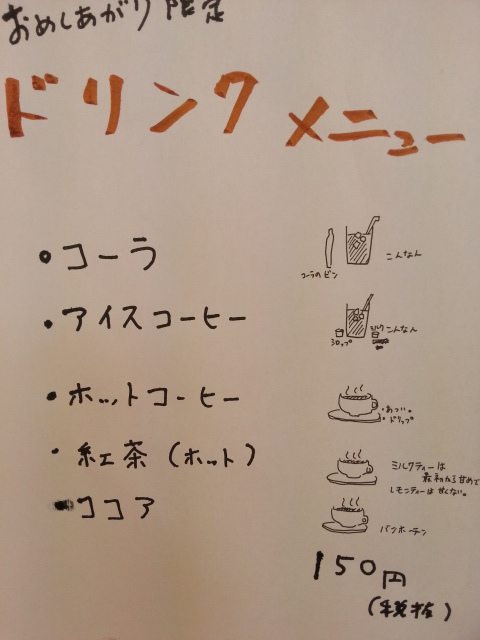 おめしあがり限定
ドリンクメニュー
・コーラ
コーラのビン
こんなん
・アイスコーヒー
シロップ
ミルク
こんなん
・ホットコーヒー
・あつい。
・ドリップ
・紅茶(ホット)
ミルクティーは
最初から甘めで
レモンティーは甘くない。
・ココア
バンホーテン
150円
(税抜)